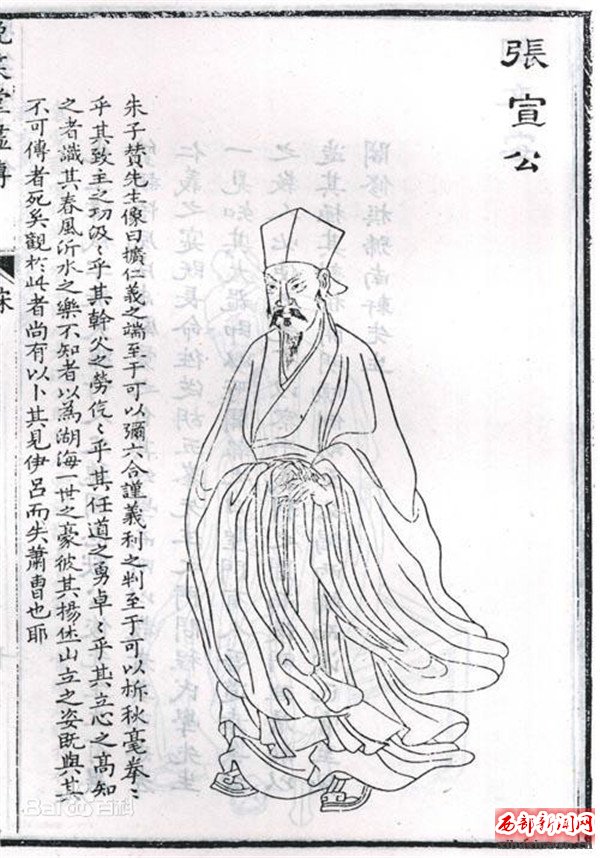 張宣公
朱子賛先生像曰擴仁義之端至于可以彌六合謹義利之判至于可以析秋毫拳〻
乎其致主之功汲〻乎其幹父之勞仡〻乎其任道之勇卓〻乎其立心之高知
之者識其春風沂水之樂不知者以為湖海一世之豪彼其揚休山立之姿既與其
不可傳者死矣觀於此者尚有以卜其見伊呂而失蕭曹也耶
晚笑堂畫傳
Bai百科
西部新闻网